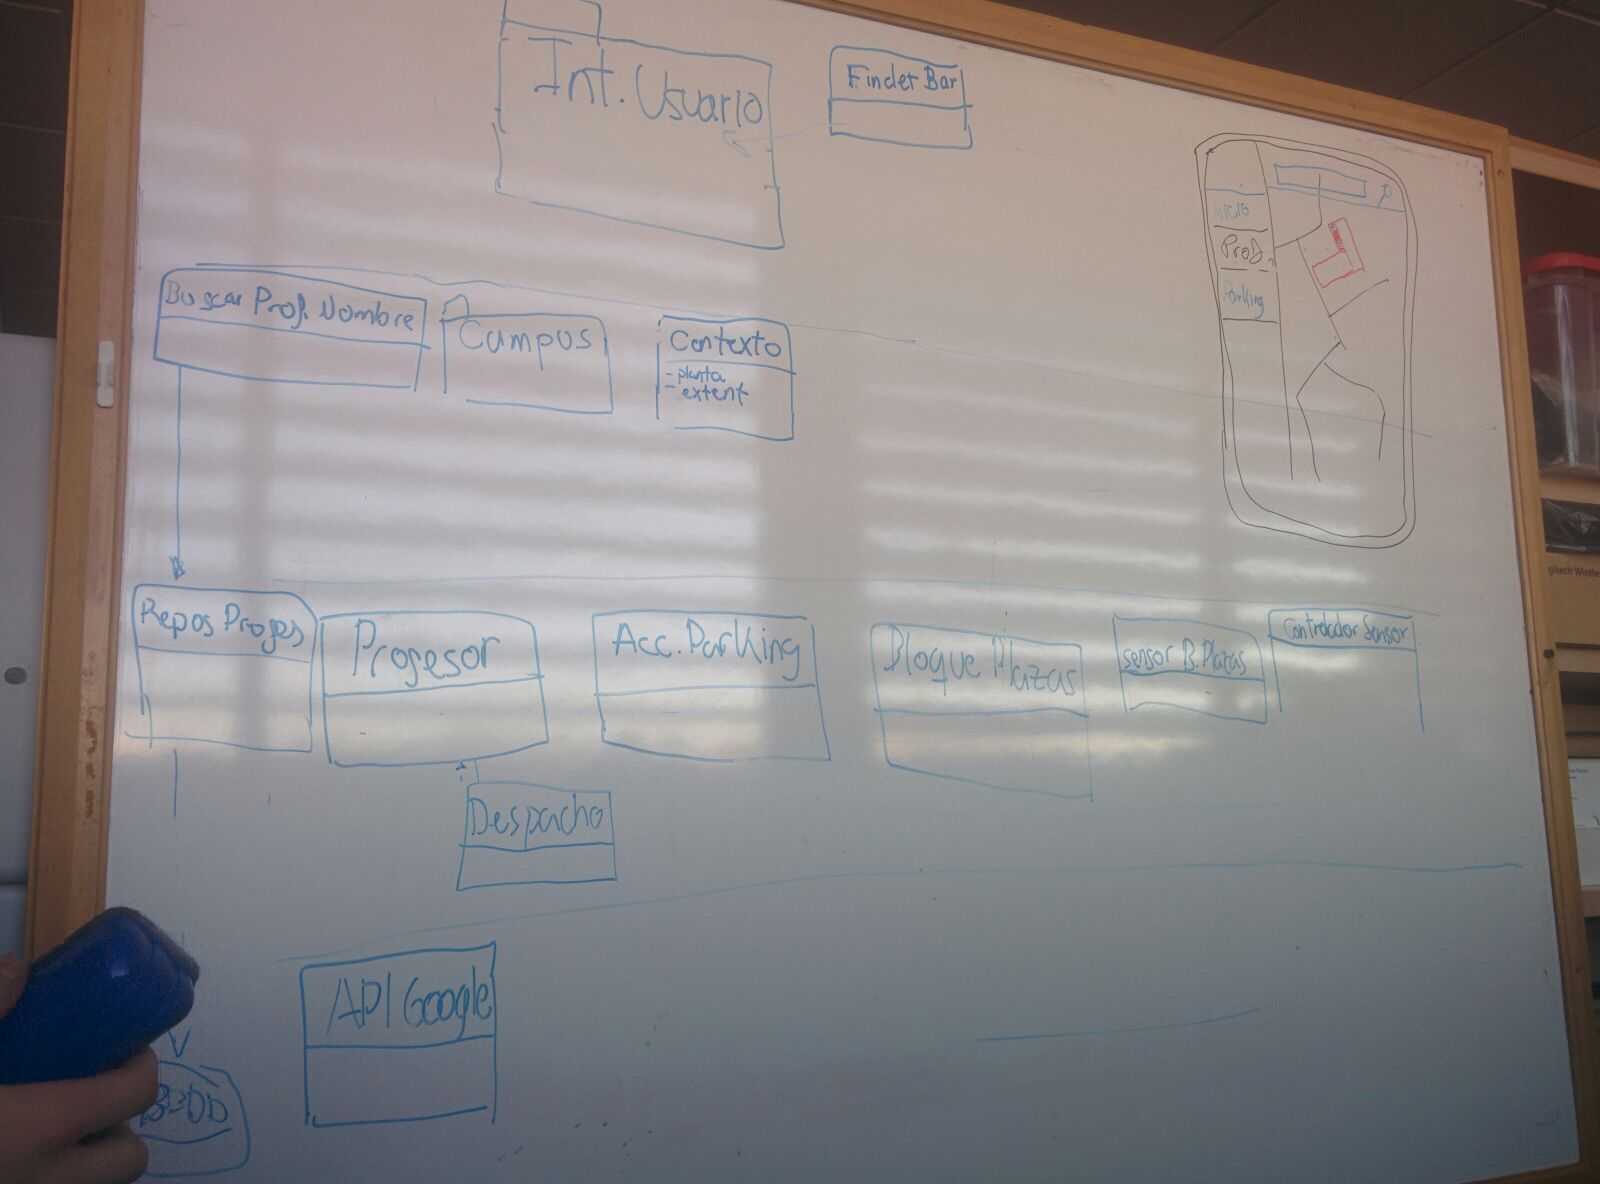 Int. Usuario
Finder Bar
Inicio
Prof.
Parking
Buscar Prof. Nombre
Campus
Contexto
- planta
- extent
Repos Profes
Profesor
Acc. Parking
Bloque Plazas
sensor B. Plazas
Controlador Sensor
Despacho
API Google
BBDD
gitech Wirele